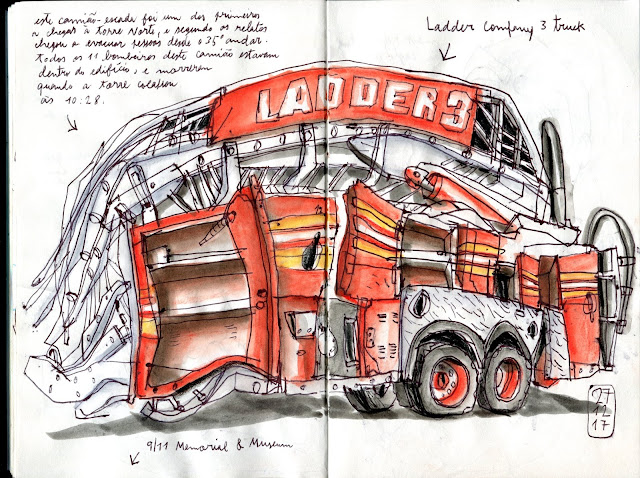 este camião-escada foi um dos primeiros
a chegar à torre Norte, e segundo os relatos
chegou a evacuar pessoas desde o 35º andar.
Todos os 11 bombeiros deste camião estavam
dentro do edifício, e morreram
quando a torre colapsou
às 10:28.
Ladder Company 3 truck
LADDER 3
9/11 Memorial & Museum
27
12
17